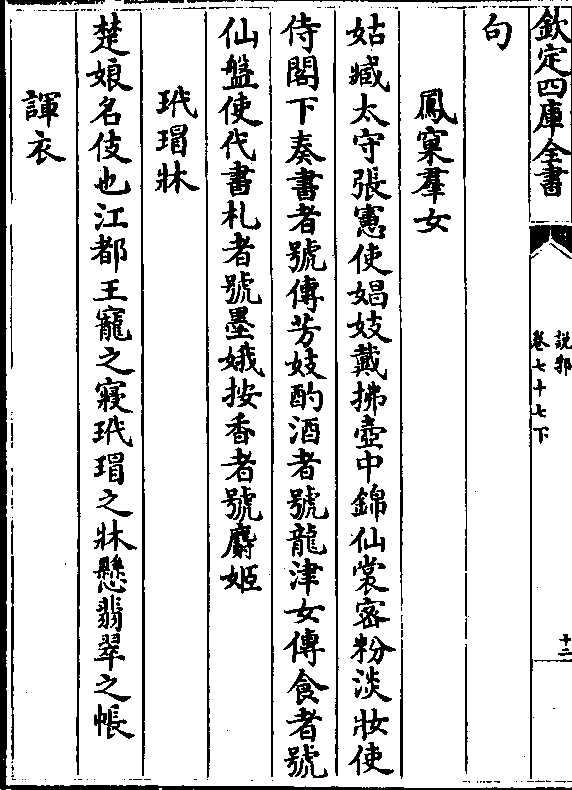 欽定四庫全書
説郛
卷七十七下
十二
句
鳳窠羣女
姑臧太守張憲使娼妓戴拂壺中錦仙裳密粉淡妝使
侍閣下奏書者號傳芳妓酌酒者號龍津女傳食者號
仙盤使代書札者號墨娥按香者號麝姬
玳瑁牀
楚娘名伎也江都王寵之寢玳瑁之牀懸翡翠之帳
諢衣